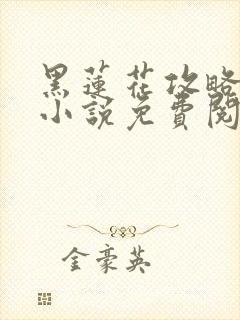 黑蓮花攻略
小說免費閱
金豪英